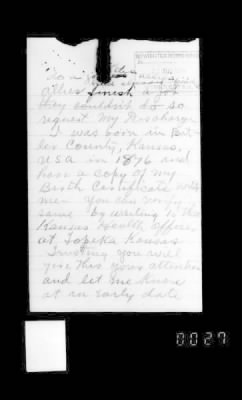 others finish a job
they couldn't do so
request my Discharge
I was born in But-
ler County, Kansas,
USA in 1896 and
have a copy of my
Birth Certificate with
me. You can verify
same by writing to the
Kansas Health Office
at Topeka Kansas
Trusting you will
give this your attention
and let me know
at an early date
0027